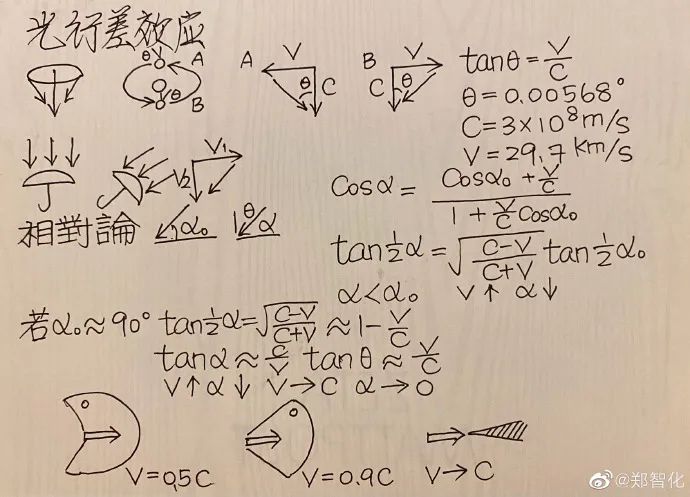 光行差效应
θ V A
θ B
A V θ C
B V θ C
tanθ = V/C
θ = 0.00568°
C = 3×10⁸ m/s
V = 29.7 km/s
V₁
V₂
Cosα = (Cosα₀ + V/C) / (1 + V/C Cosα₀)
相對論 α₀ θ α
tan½α = √((C-V)/(C+V)) tan½α₀
α < α₀ V↑ α↓
若α₀≈90° tan½α = √((C-V)/(C+V)) ≈ 1 - V/C
tanα ≈ C/V tanθ ≈ V/C
V↑ α↓ V→C α→0
V = 0.5C
V = 0.9C
V → C
@郑智化